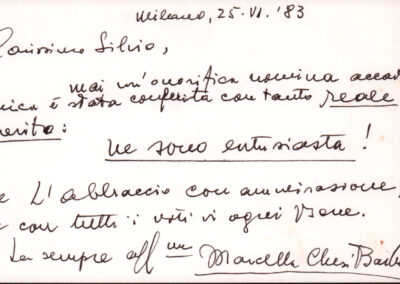 Milano, 25.VI.'83
Carissimo Silvio,
mai un'onorifica nomina accad
mica è stata conferita con tanto reale
merito:
ne sono entusiasta!
e L'abbraccio con ammirazione,
e con tutti i voti di ogni bene.
La sempre aff.ma Marcella Chesi